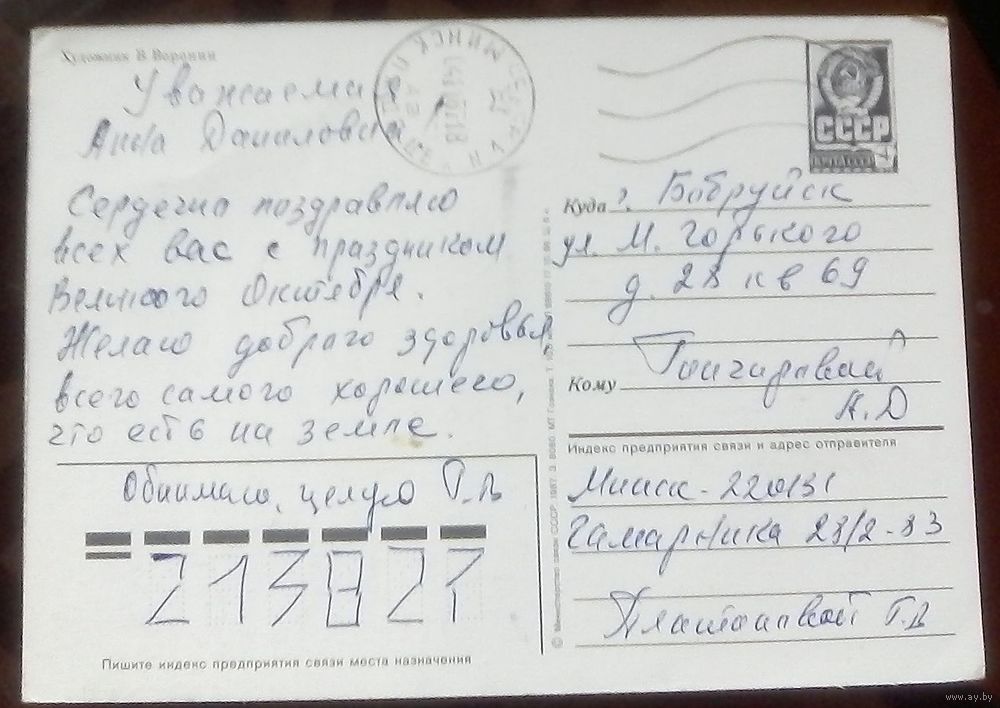 Художник В. Воронин
Уважаемая
Анна Даниловна!
Сердечно поздравляю
всех вас с праздником
Великого Октября.
Желаю доброго здоровья,
всего самого хорошего,
что есть на земле.
Обнимаю, целую Г.В
213821
Пишите индекс предприятия связи места назначения
МИНСК
СССР
Куда г. Бобруйск
ул. М. Горького
д. 28 кв 69
Кому
А.Д
Индекс предприятия связи и адрес отправителя
Минск - 220131
Гамарника 23/2-83
Г.В
© Министерство связи СССР. 1987.
www.ay.by